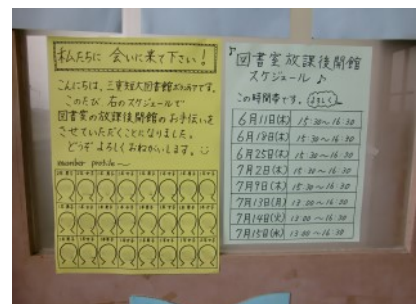 私たちに会いに来て下さい!
こんにちは、三重短大図書館
このたび、右のスケジュールで
図書室の放課後開館のお手伝いを
させていただくことになりました。
どうぞよろしくおねがいします。
member profile~
♪図書室放課後開館
スケジュール♪
この時間帯です。よろしく
6月11日(木) 15:30~16:30
6月18日(木) 15:30~16:30
6月25日(木) 15:30~16:30
7月2日(木) 15:30~16:30
7月9日(木) 15:30~16:30
7月13日(月) 13:00~16:30
7月14日(火) 13:00~16:30
7月15日(水) 13:00~16:30